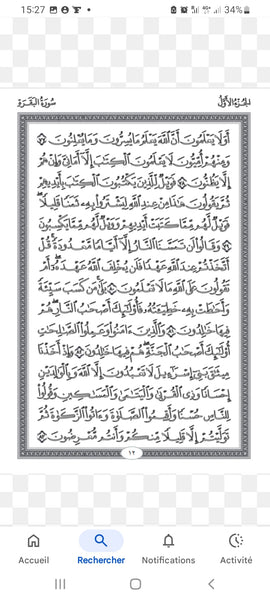 15:27 4G+ 34%
الجزء الأول سورة البقرة
أَوَلَا يَعْلَمُونَ أَنَّ ٱللَّهَ يَعْلَمُ مَا يُسِرُّونَ وَمَا يُعْلِنُونَ
وَمِنْهُمْ أُمِّيُّونَ لَا يَعْلَمُونَ ٱلْكِتَٰبَ إِلَّآ أَمَانِىَّ وَإِنْ هُمْ
إِلَّا يَظُنُّونَ فَوَيْلٌ لِّلَّذِينَ يَكْتُبُونَ ٱلْكِتَٰبَ بِأَيْدِيهِمْ
ثُمَّ يَقُولُونَ هَٰذَا مِنْ عِندِ ٱللَّهِ لِيَشْتَرُوا۟ بِهِۦ ثَمَنًا قَلِيلًا
فَوَيْلٌ لَّهُم مِّمَّا كَتَبَتْ أَيْدِيهِمْ وَوَيْلٌ لَّهُم مِّمَّا يَكْسِبُونَ
وَقَالُوا۟ لَن تَمَسَّنَا ٱلنَّارُ إِلَّآ أَيَّامًا مَّعْدُودَةً قُلْ
أَتَّخَذْتُمْ عِندَ ٱللَّهِ عَهْدًا فَلَن يُخْلِفَ ٱللَّهُ عَهْدَهُۥٓ أَمْ
تَقُولُونَ عَلَى ٱللَّهِ مَا لَا تَعْلَمُونَ بَلَىٰ مَن كَسَبَ سَيِّئَةً
وَأَحَٰطَتْ بِهِۦ خَطِيٓـَٔتُهُۥ فَأُو۟لَٰٓئِكَ أَصْحَٰبُ ٱلنَّارِ هُمْ
فِيهَا خَٰلِدُونَ وَٱلَّذِينَ ءَامَنُوا۟ وَعَمِلُوا۟ ٱلصَّٰلِحَٰتِ
أُو۟لَٰٓئِكَ أَصْحَٰبُ ٱلْجَنَّةِ هُمْ فِيهَا خَٰلِدُونَ وَإِذْ أَخَذْنَا
مِيثَٰقَ بَنِىٓ إِسْرَٰٓءِيلَ لَا تَعْبُدُونَ إِلَّا ٱللَّهَ وَبِٱلْوَٰلِدَيْنِ
إِحْسَانًا وَذِى ٱلْقُرْبَىٰ وَٱلْيَتَٰمَىٰ وَٱلْمَسَٰكِينِ وَقُولُوا۟
لِلنَّاسِ حُسْنًا وَأَقِيمُوا۟ ٱلصَّلَوٰةَ وَءَاتُوا۟ ٱلزَّكَوٰةَ ثُمَّ
تَوَلَّيْتُمْ إِلَّا قَلِيلًا مِّنكُمْ وَأَنتُم مُّعْرِضُونَ
١٢
Accueil Rechercher Notifications Activité